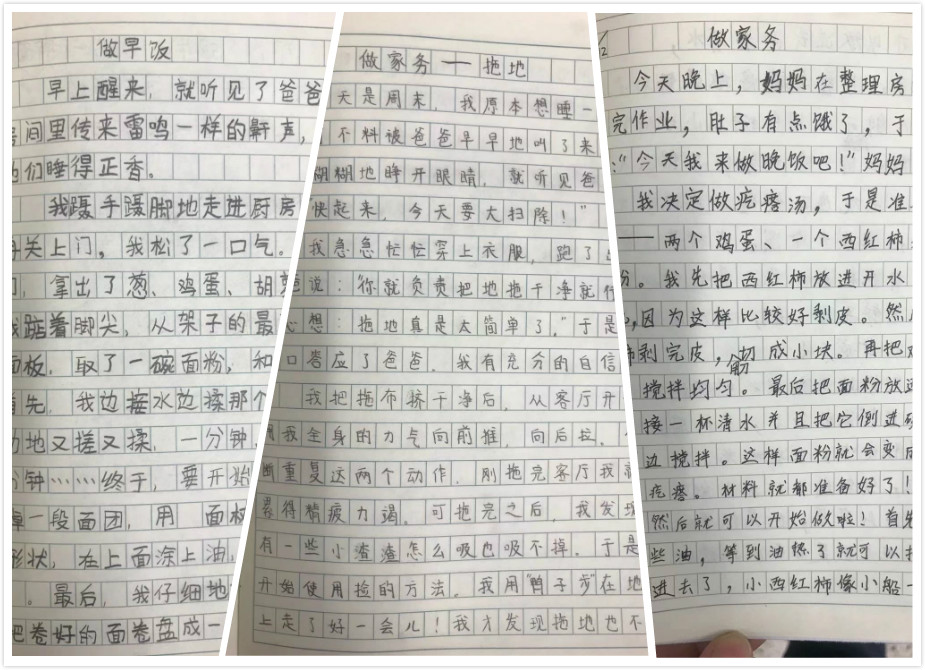 做早饭
早上醒来，就听见了爸爸
房间里传来雷鸣一样的鼾声，
他们睡得正香。
我蹑手蹑脚地走进厨房
关上门，我松了一口气。
，拿出了葱、鸡蛋、胡萝
我踮着脚尖，从架子的最
面板，取了一碗面粉，和
首先，我边接水边揉那个
地又搓又揉，一分钟，
分钟……终于，要开始
一段面团，用 面棍
形状，在上面涂上油，
。最后，我仔细地
把卷好的面卷盘成一
做家务——拖地
天是周末，我原本想睡一
不料被爸爸早早地叫了来
糊糊地睁开眼睛，就听见爸
“快起来，今天要大扫除！”
我急急忙忙穿上衣服，跑了出
说：“你就负责把地拖干净就行
心想：拖地真是太简单了，”于是
口答应了爸爸，我有充分的自信
我把拖布挤干净后，从客厅开
用我全身的力气向前推，向后拉，
断重复这两个动作，刚拖完客厅我就
累得精疲力竭，可拖完之后，我发现
有一些小渣渣怎么吸也吸不掉，于是
开始使用捡的方法，我用“鸭子步”在地
上走了好一会儿！我才发现拖地也不
做家务
今天晚上，妈妈在整理房
完作业，肚子有点饿了，于
：“今天我来做晚饭吧！”妈妈
我决定做疙瘩汤，于是准
——两个鸡蛋、一个西红柿
。我先把西红柿放进开水
，因为这样比较好剥皮。然后
剥完皮，切成小块。再把
搅拌均匀。最后把面粉放进
接一杯清水并且把它倒进碗
边搅拌。这样面粉就会变成
疙瘩。材料就都准备好了！
然后就可以开始做啦！首先
些油，等到油热了就可以把
进去了，小西红柿像小船